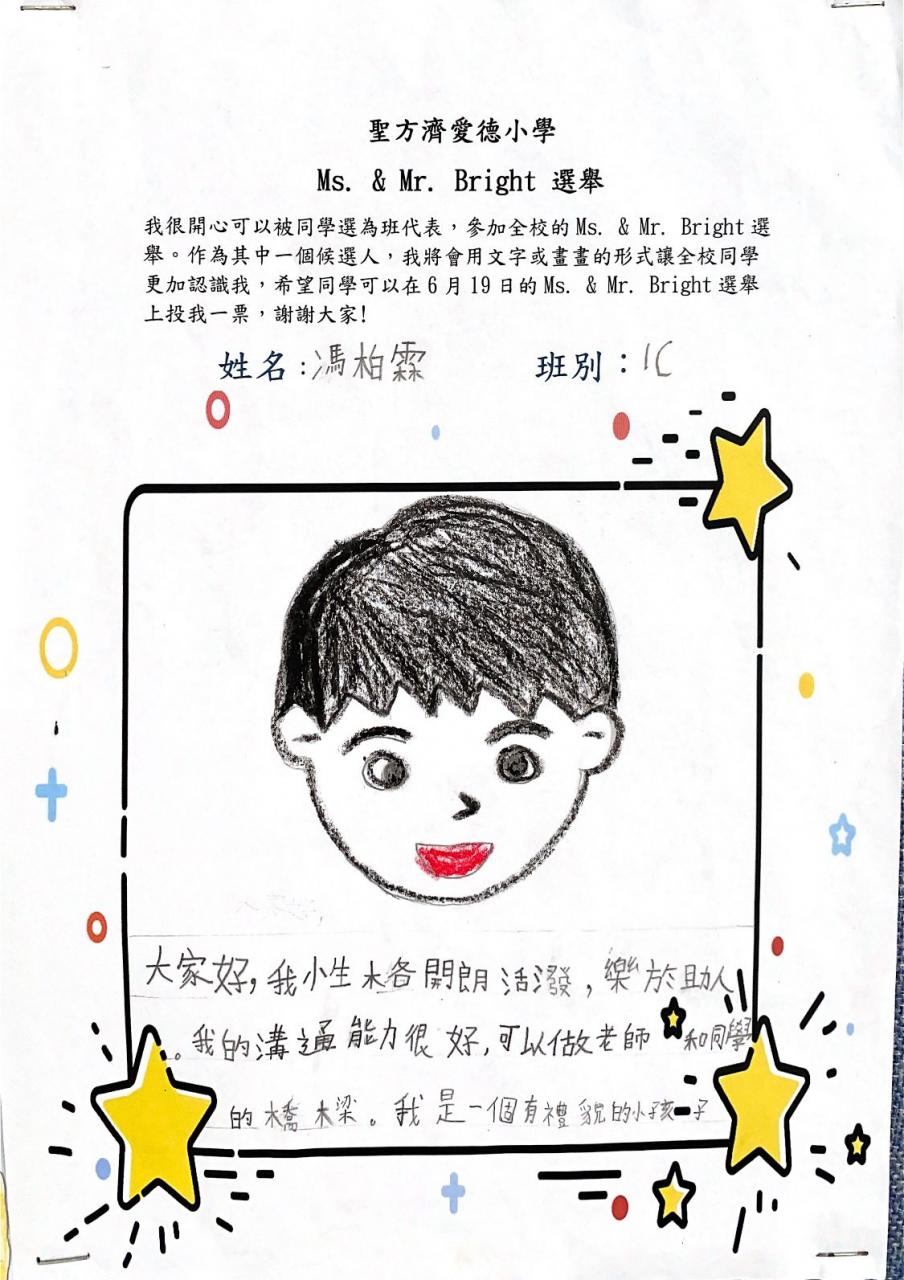 聖方濟愛德小學
Ms. & Mr. Bright 選舉
我很開心可以被同學選為班代表，參加全校的Ms. & Mr. Bright選
舉。作為其中一個候選人，我將會用文字或畫畫的形式讓全校同學
更加認識我，希望同學可以在6月19日的Ms. & Mr. Bright選舉
上投我一票，謝謝大家!
姓名：馮柏霖 班別：1C
大家好，我小生木各開朗活潑，樂於助人
。我的溝通能力很好，可以做老師和同學
的橋樑。我是一個有禮貌的小孩子